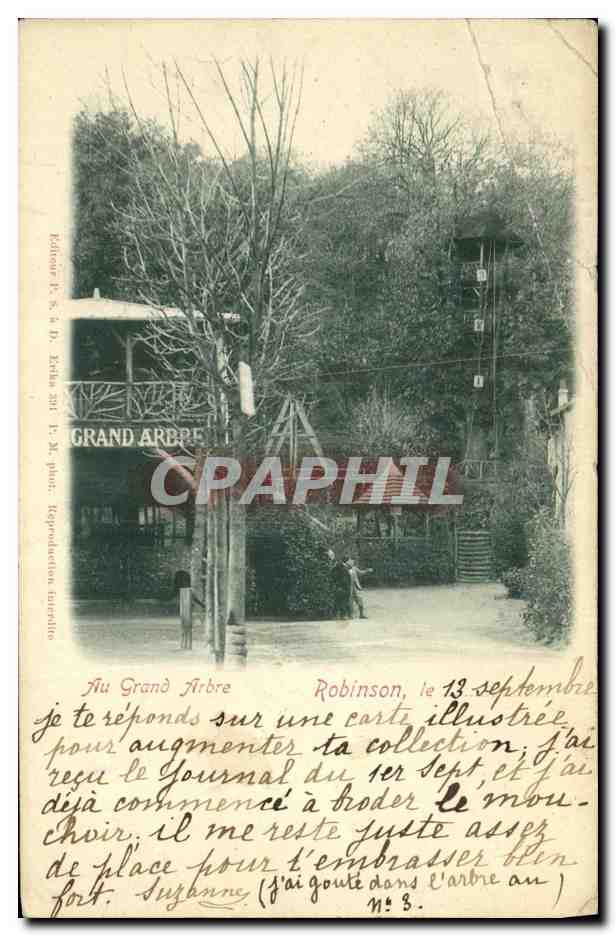 GRAND ARBRE
CARTAPHIL
Editeur P. S. à D. Erika 391 P. M. phot. Reproduction interdite
Au Grand Arbre
Robinson, le 13 septembre
je te réponds sur une carte illustrée
pour augmenter ta collection; j'ai
reçu le Journal du 1er Sept, et j'ai
déjà commencé à broder le mou-
choir; il me reste juste assez
de place pour t'embrasser bien
fort. Suzanne (j'ai gouté dans l'arbre au)
n° 3.